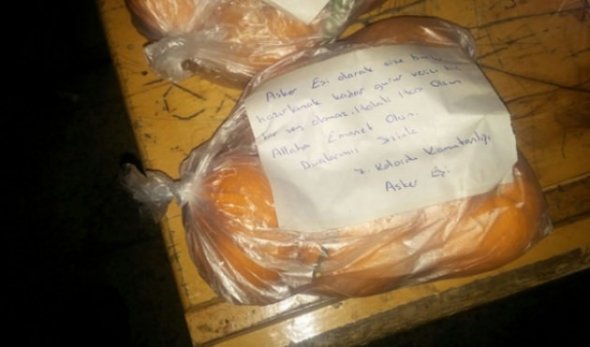 Asker Eşi olarak size bunları
hazırlamak kadar gurur verici bir
bir şey olamaz. Helali Hoş Olsun
Allaha Emanet Olun.
Dualarımız Sizinle
Kolordu Komutanlığı
Asker Eşi.